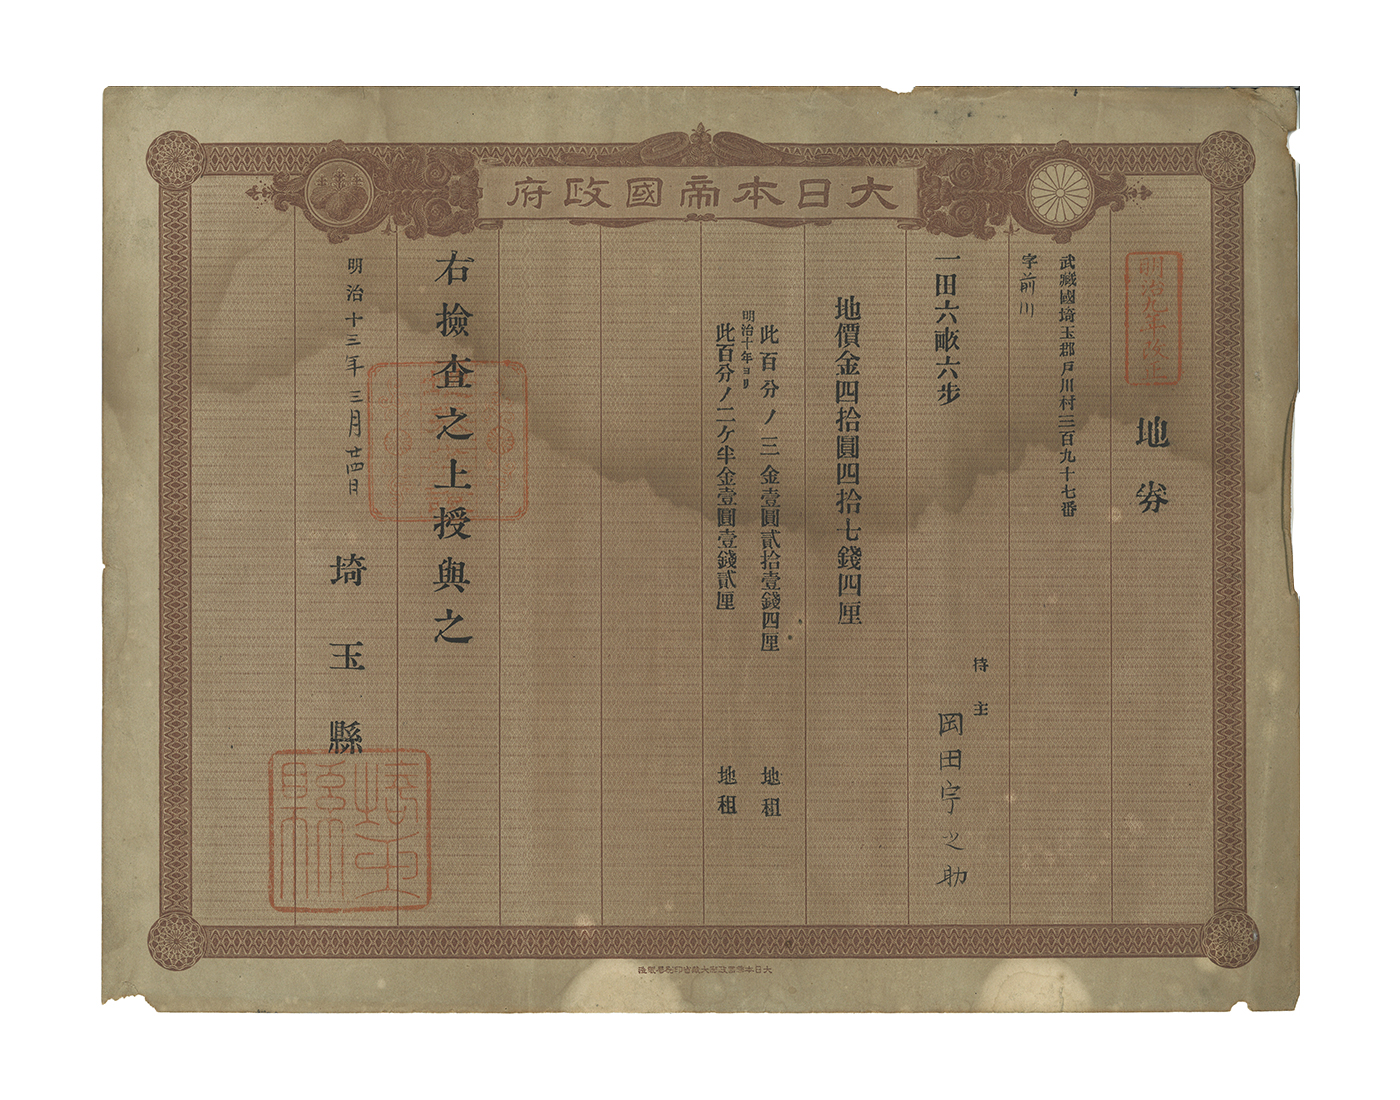 大日本帝國政府
明治九年改正
地券
武藏國埼玉郡戸川村三百九十七番
字前川
一田六畝六步
持主
岡田宇之助
地價金四拾圓四拾七錢四厘
此百分ノ三金壹圓貳拾壹錢四厘 地租
明治十年ヨリ
此百分ノ二ケ半金壹圓壹錢貳厘 地租
右撿査之上授與之
明治十三年三月廿四日
埼玉縣
埼玉縣印
大日本帝國政府大藏省印刷局製造